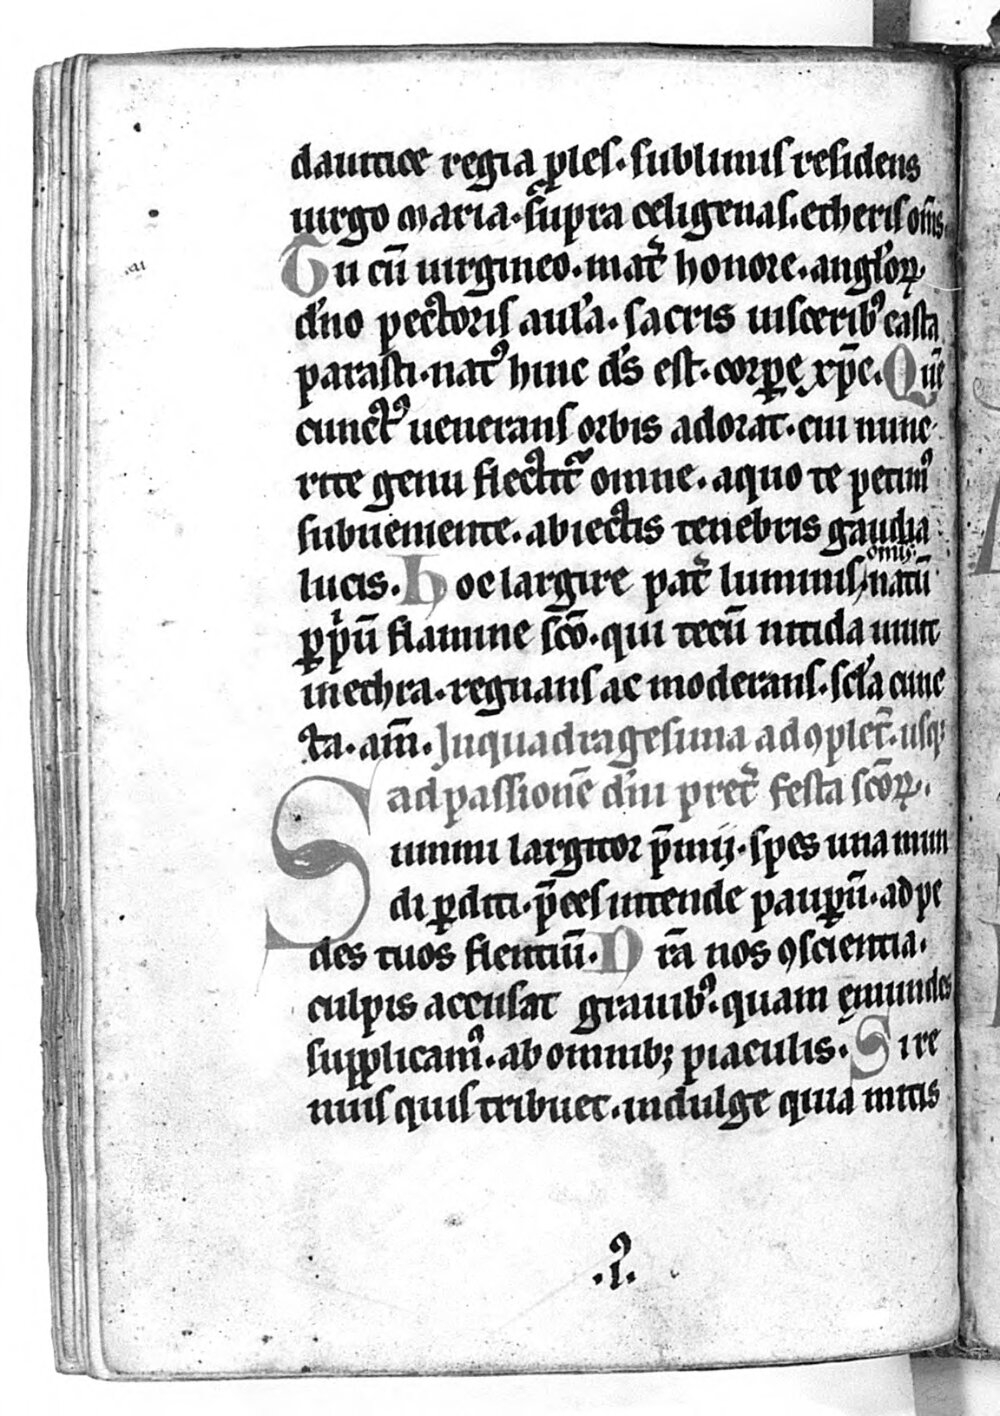 dauitice regia ꝓles · sublimis residens
uirgo maria · supra celigenas · etheris om̄s
Tu cū uirgineo · mat̾ honore · angl̾oꝝ
dn̄o pectoris aula · sacris uisceribꝰ casta
parasti · natꝰ hinc ds̄ est · corꝑe xp̄c · Quē
cunctꝰ uenerans orbis adorat · cui nunc
rite genu flectit᷑ omne · a quo te petimꝰ
subueniente · abiectis tenebris gaudia
lucis · Hoc largire pat̾ luminis omīs
natū
ꝑ pͥ̄ū flamine sc̄o · qui tecū nitida uiuit
in ethra · regnans ac moderans · scl̄a cunc
ta · am̄ · In quadragesima ad ꝯplet̄ · usqꝫ
ad passionē dn̄i pret̾ festa sc̄oꝝ ·
Summi largitor p̄mij · spes una mun
di ꝑditi · p̄ces intende pauꝑū · ad pe
des tuos flentiū · Nrā nos ꝯscientia ·
culpis accusat grauibꝰ · quam emundes
supplicamꝰ · ab omnibꝫ piaculis · Si re
nuis quis tribuet · indulge quia mitis
· iꝰ ·